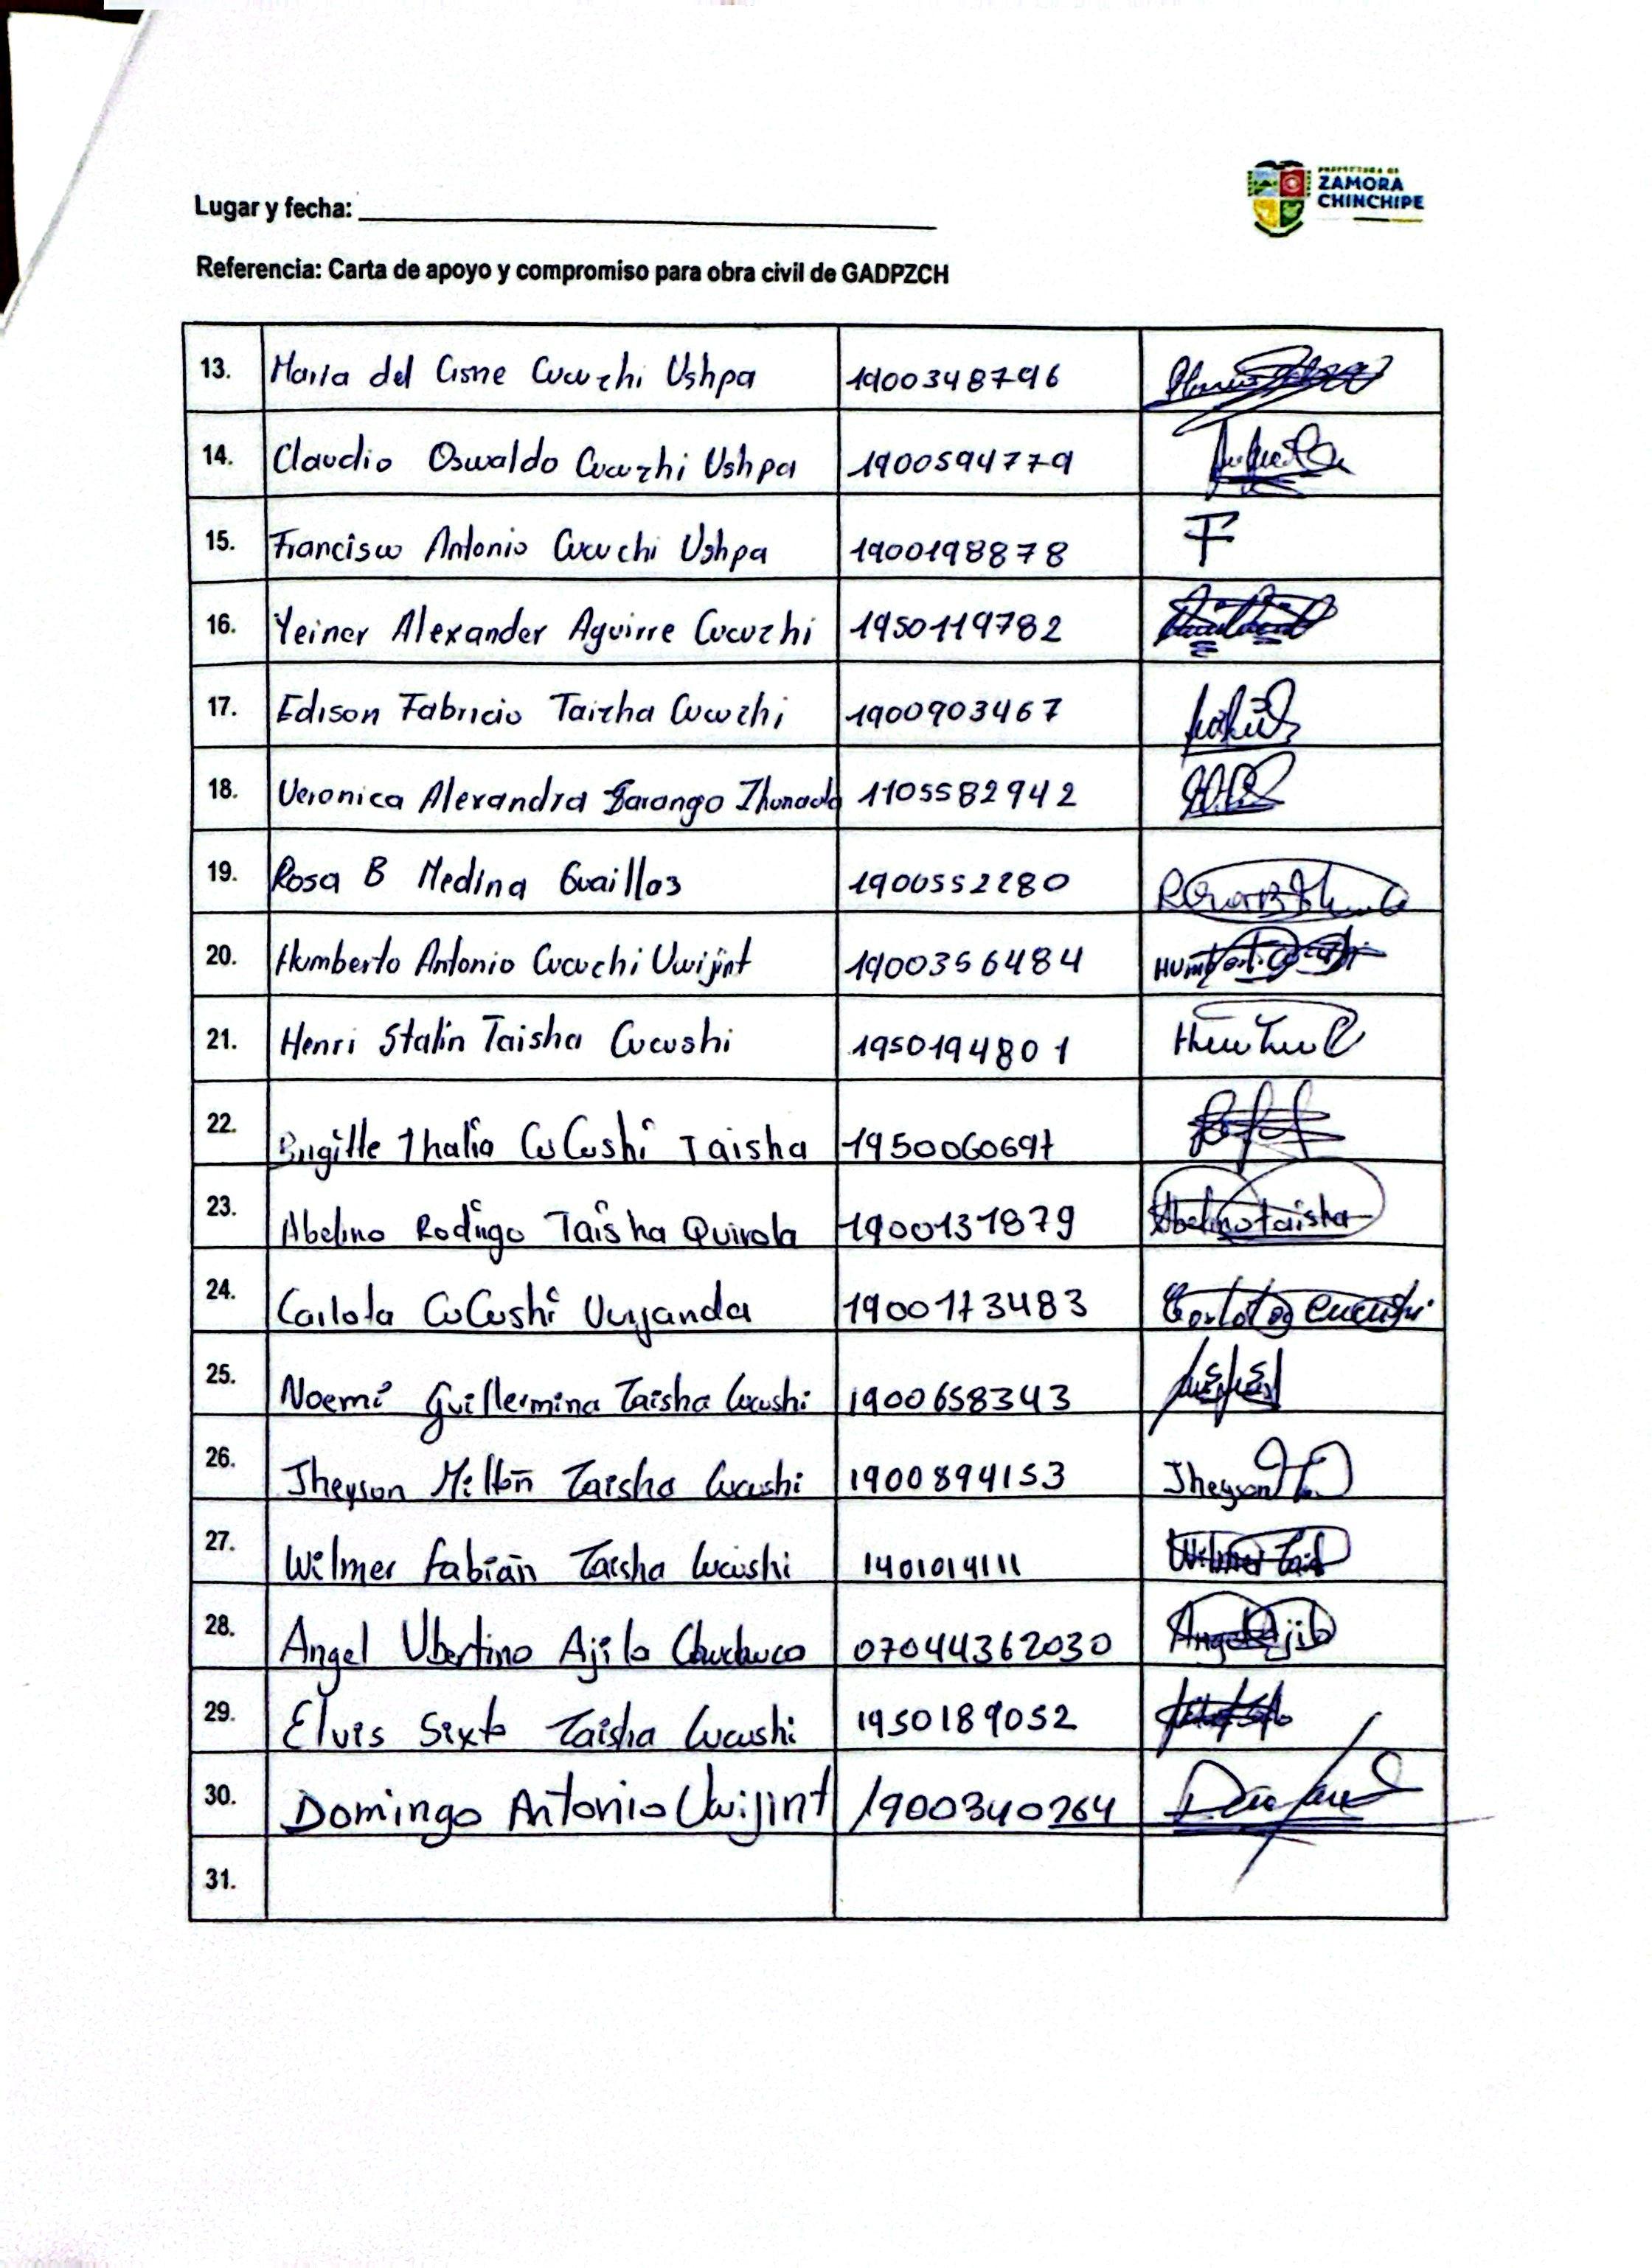 PREFECTURA DE
ZAMORA
CHINCHIPE
Lugar y fecha:
Referencia: Carta de apoyo y compromiso para obra civil de GADPZCH
13. Maria del Cisne Cucuzhi Ushpa 1900348796
14. Claudio Oswaldo Cucuzhi Ushpa 1900594779
15. Francisco Antonio Cucuchi Ushpa 1900198878 F
16. Yeiner Alexander Aguirre Cucuzhi 1950119782
17. Edison Fabricio Taizha Cucuzhi 1900903467
18. Veronica Alexandra Sarango 1105582942
19. Rosa B Medina Guaillas 1900552280
20. Humberto Antonio Cucuchi Uwijint 1900356484
21. Henri Stalin Taisha Cucushi 1950194801
22. Brigitte Thalia CuCushi Taisha 1950060697
23. Abelino Rodrigo Taisha Quirola 1900131879 Abelino taisha
24. Carlota CuCushi 1900173483 Carlota cucushi
25. Noemí Guillermina Taisha Cucushi 1900658343
26. Jheyson Milton Taisha Cucushi 1900894153 Jheyson
27. Wilmer Fabián Taisha Cucushi 1401014111 Wilmer
28. Angel Ubertino Ajila 07044362030 Angel Ajila
29. Elvis Sixto Taisha Cucushi 1950189052
30. Domingo Antonio Uwijint 1900340264
31.